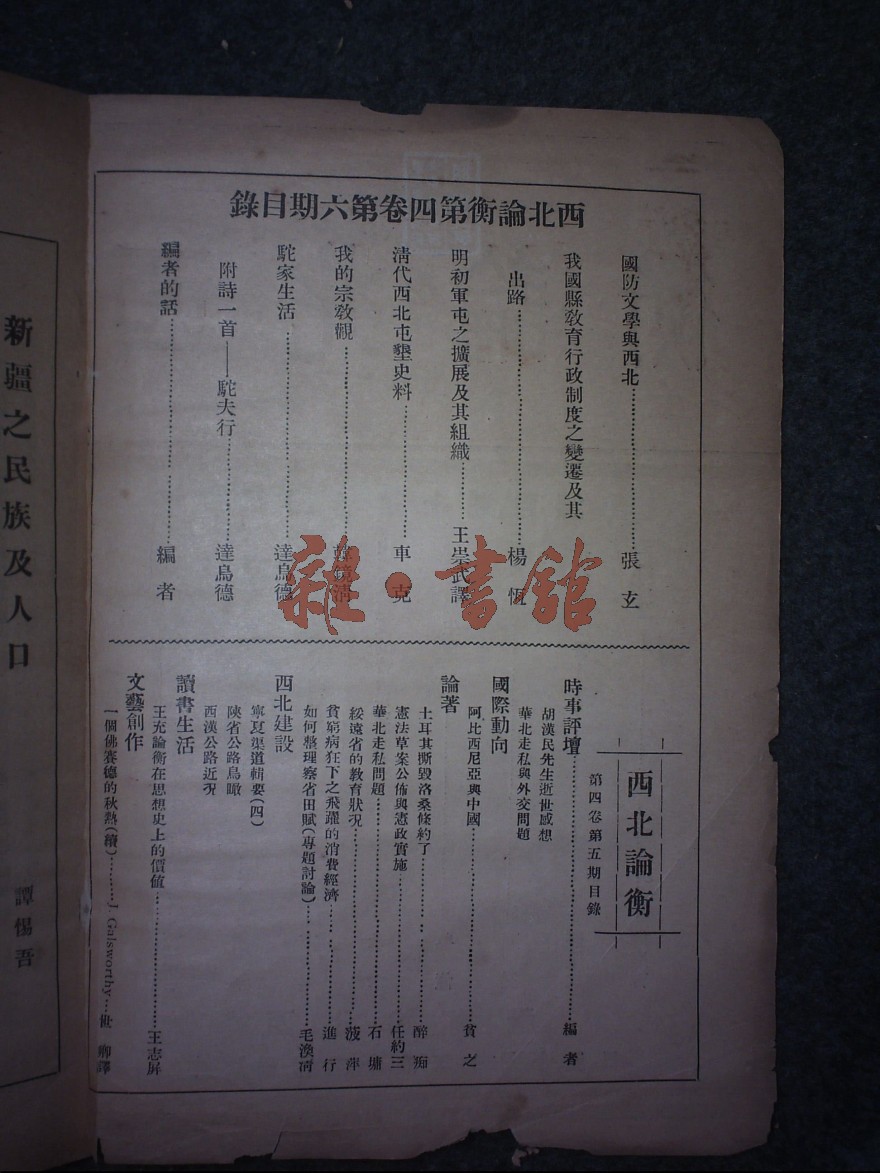 西北論衡第四卷第六期目錄
國防文學與西北……………………張玄
我國縣教育行政制度之變遷及其
出路……………………楊恆
明初軍屯之擴展及其組織…………王崇武譯
清代西北屯墾史料……………………車克
我的宗教觀……………………鏡清
駝家生活……………………達烏德
附詩一首——駝夫行……………………達烏德
編者的話……………………編者
西北論衡
第四卷第五期目錄
時事評壇……………………編者
胡漢民先生逝世感想
華北走私與外交問題
國際動向
阿比西尼亞與中國……………………貧之
論著
土耳其撕毀洛桑條約了……………………醉痴
憲法草案公佈與憲政實施……………………任約三
華北走私問題……………………石墉
綏遠省的教育狀况……………………菠萍
貧窮病狂下之飛躍的消費經濟……………………進行
如何整理察省田賦(專題討論)……………………毛渙清
西北建設
寧夏渠道輯要(四)
陝省公路鳥瞰
西漢公路近況
讀書生活
王充論衡在思想史上的價值……………………王志屏
文藝創作
一個佛賽德的秋熱(續)…………J. Galsworthy…世卿譯
新疆之民族及人口
譚惕吾
雜·書舘